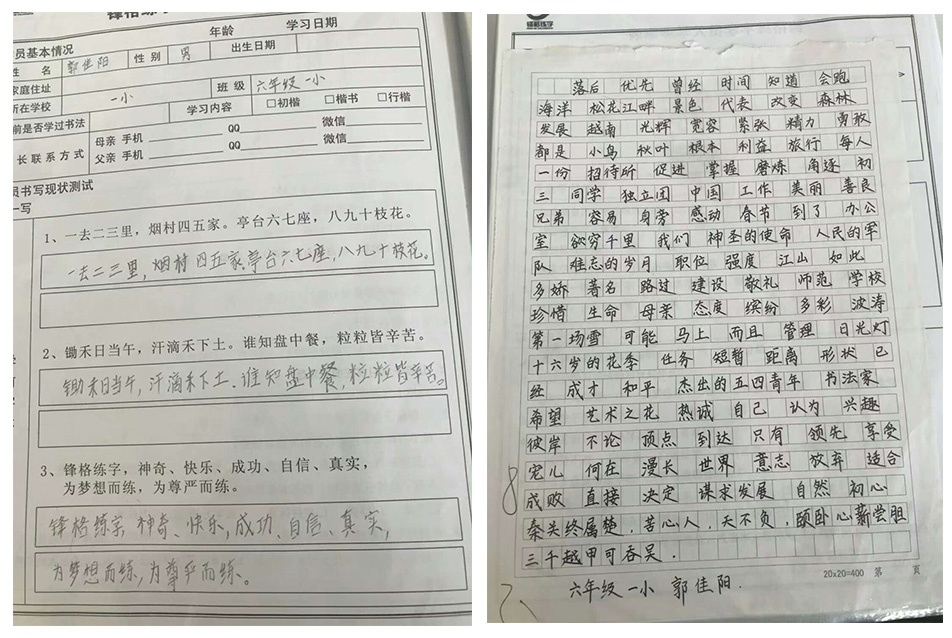 锋格练字
年龄 学习日期
员基本情况
姓 名 郭佳阳 性 别 男 出生日期
家庭住址
所在学校 一小 班 级 六年级一小
前是否学过书法 学习内容 □初楷 □楷书 □行楷
长联系方式 母亲 手机 QQ 微信
父亲 手机 QQ 微信
员书写现状测试
一写
1、一去二三里，烟村四五家。亭台六七座，八九十枝花。
一去二三里，烟村四五家。亭台六七座，八九十枝花。
2、锄禾日当午，汗滴禾下土。谁知盘中餐，粒粒皆辛苦。
锄禾日当午，汗滴禾下土．谁知盘中餐，粒粒皆辛苦。
3、锋格练字，神奇、快乐、成功、自信、真实，
为梦想而练，为尊严而练。
锋格练字，神奇、快乐，成功、自信、真实，
为梦想而练，为尊严而练。
落后 优先 曾经 时间 知道 会跑
海洋 松花江畔 景色 代表 改变 森林
发展 越南 光辉 宽容 紧张 精力 勇敢
都是 小鸟 秋叶 根本 利益 旅行 每人
一份 招待所 促进 掌握 磨炼 角逐 初
三 同学 独立团 中国 工作 美丽 善良
兄弟 容易 身旁 感动 春节 到了 办公
室 欲穷千里 我们 神圣的使命 人民的军
队 难忘的岁月 职位 强度 江山 如此
多娇 著名 路过 建设 敬礼 师范 学校
珍惜 生命 母亲 态度 缤纷 多彩 波涛
第一场雪 可能 马上 而且 管理 日光灯
十六岁的花季 任务 短暂 距离 形状 已
经 成才 和平 杰出的五四青年 书法家
希望 艺术之花 热诚 自己 认为 兴趣
彼岸 不论 顶点 到达 只有 领先 享受
宠儿 何在 漫长 世界 意志 放弃 适合
成败 直接 决定 谋求发展 自然 初心
秦关终属楚．苦心人，天不负，颐卧心薪尝胆
三千越甲可吞吴．
20×20=400 第 页
六年级一小 郭佳阳.